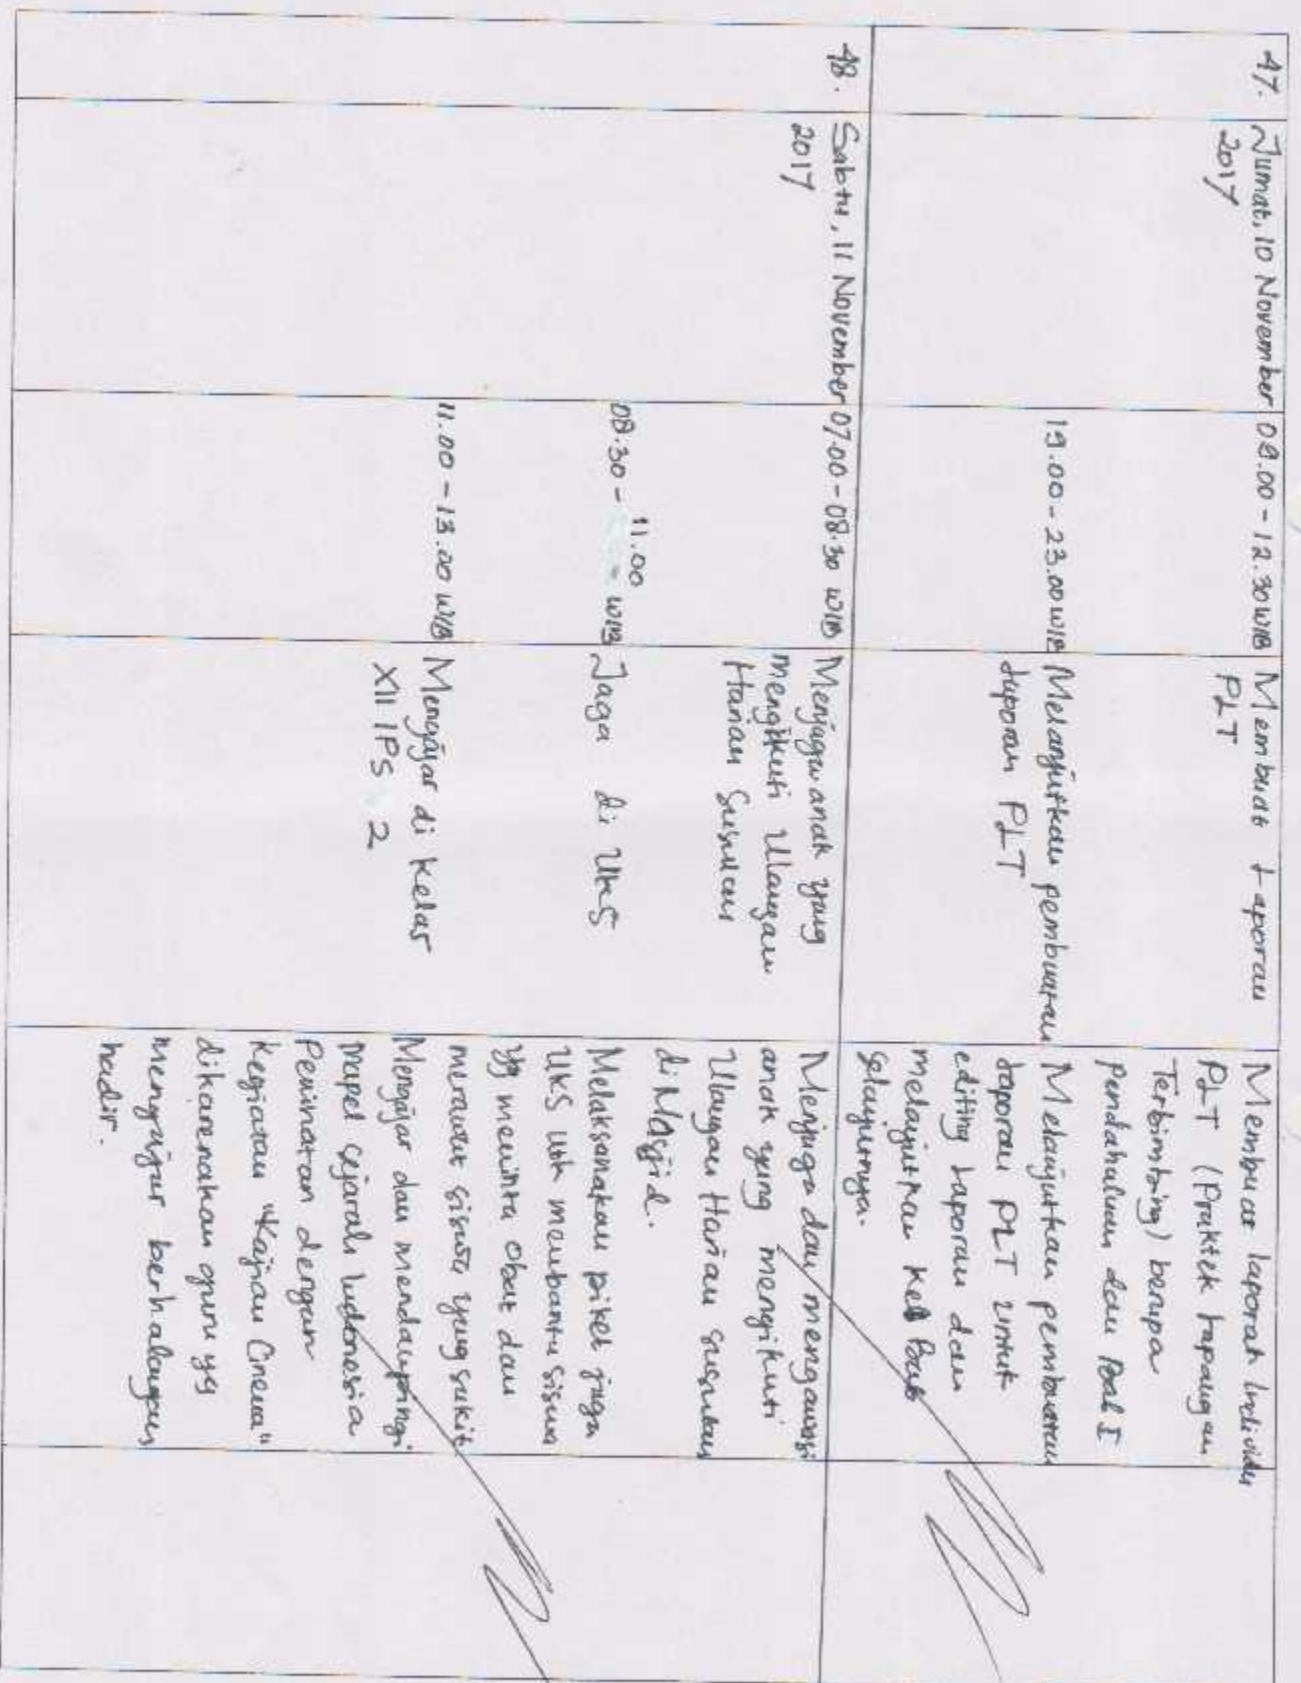 47.
Jumat, 10 November
2017
08.00 - 12.30 WIB
Membuat Laporan
PLT
Membuat laporan Individu
PLT (Praktek Lapangan
Terbimbing) berupa
Pendahuluan dan Bab I
19.00 - 23.00 WIB
Melanjutkan pembuatan
Laporan PLT
Melanjutkan pembuatan
Laporan PLT untuk
editing Laporan dan
melanjutkan ke Bab
selanjutnya.
48.
Sabtu, 11 November
2017
07.00 - 08.30 WIB
Menjaga anak yang
mengikuti Ulangan
Harian Susulan
Menjaga dan mengawasi
anak yang mengikuti
Ulangan Harian susulan
di Masjid.
08.30 - 11.00 WIB
Jaga di UKS
Melaksanakan piket jaga
UKS utk membantu siswa
yg meminta obat dan
merawat siswa yang sakit
11.00 - 13.00 WIB
Mengajar di Kelas
XII IPS 2
Mengajar dan mendampingi
mapel sejarah Indonesia
Peminatan dengan
Kegiatan "Kajian Cinema"
dikarenakan guru yg
mengajar berhalangan
hadir.